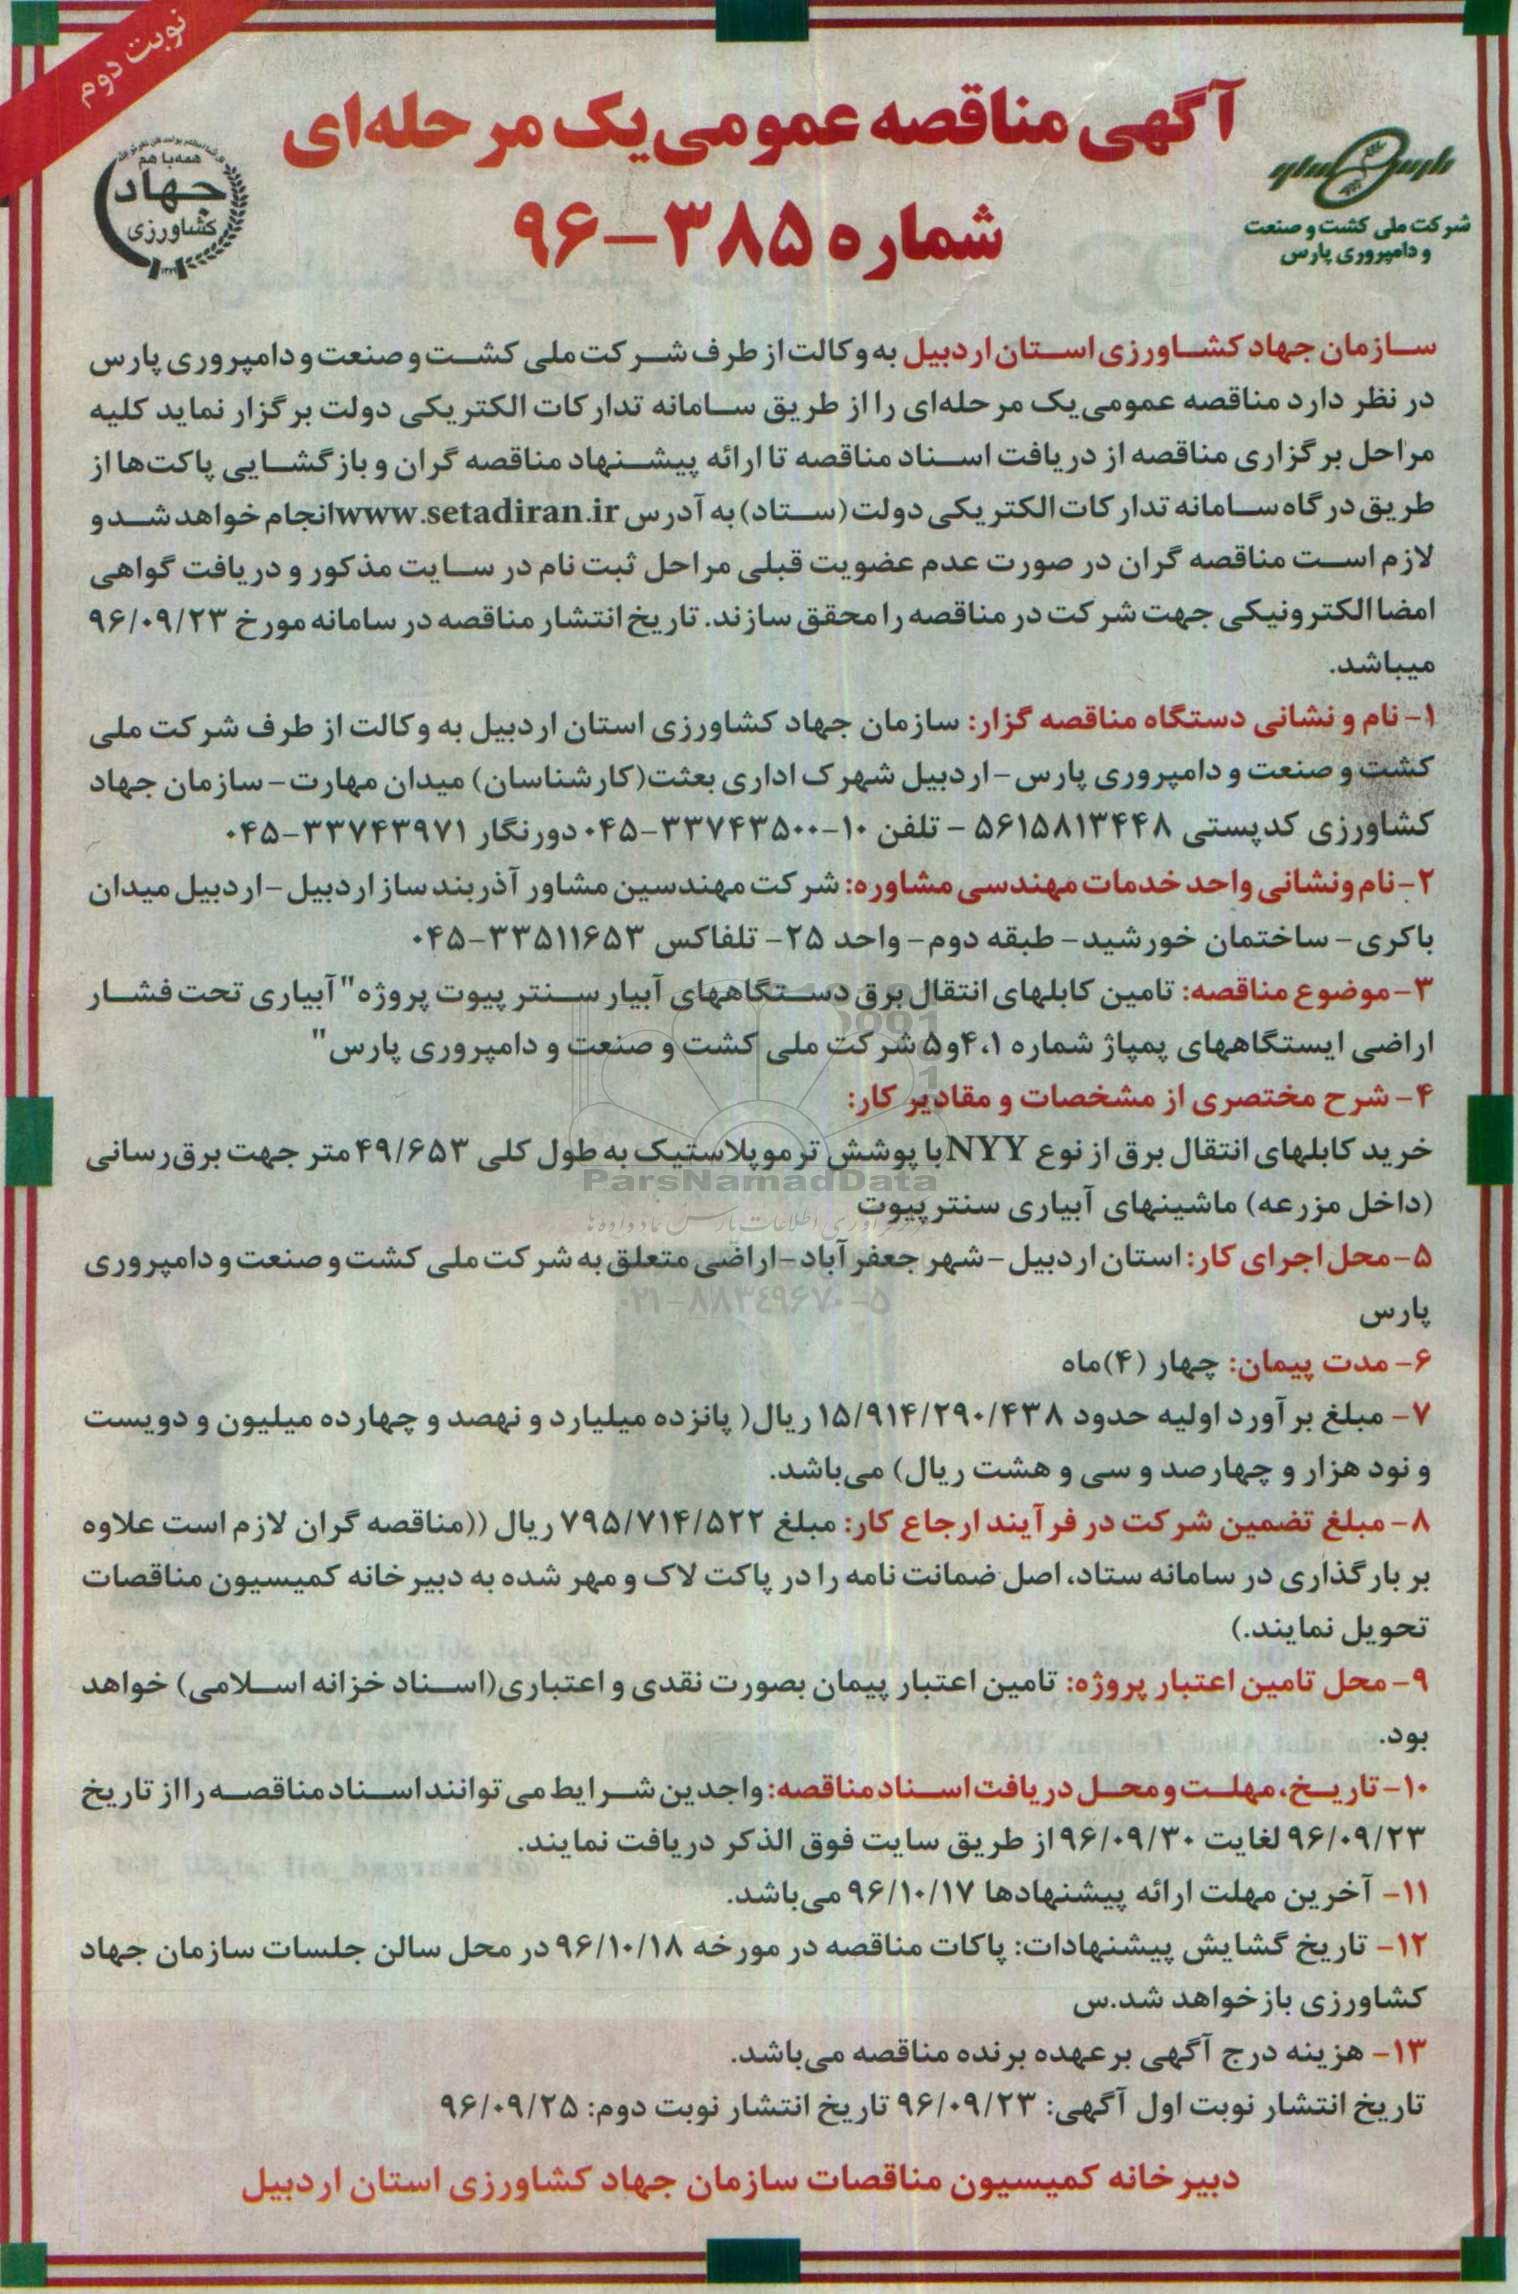 نوبت دوم
آگهی مناقصه عمومی یک مرحله‌ای
شماره ۳۸۵-۹۶
همه با هم
جهاد
کشاورزی
پارس
شرکت ملی کشت و صنعت
و دامپروری پارس
سازمان جهاد کشاورزی استان اردبیل به وکالت از طرف شرکت ملی کشت و صنعت و دامپروری پارس
در نظر دارد مناقصه عمومی یک مرحله‌ای را از طریق سامانه تدارکات الکتریکی دولت برگزار نماید کلیه
مراحل برگزاری مناقصه از دریافت اسناد مناقصه تا ارائه پیشنهاد مناقصه گران و بازگشایی پاکت‌ها از
طریق درگاه سامانه تدارکات الکتریکی دولت (ستاد) به آدرس www.setadiran.ir انجام خواهد شد و
لازم است مناقصه گران در صورت عدم عضویت قبلی مراحل ثبت نام در سایت مذکور و دریافت گواهی
امضا الکترونیکی جهت شرکت در مناقصه را محقق سازند. تاریخ انتشار مناقصه در سامانه مورخ ۹۶/۰۹/۲۳
میباشد.
۱- نام و نشانی دستگاه مناقصه گزار: سازمان جهاد کشاورزی استان اردبیل به وکالت از طرف شرکت ملی
کشت و صنعت و دامپروری پارس - اردبیل شهرک اداری بعثت (کارشناسان) میدان مهارت - سازمان جهاد
کشاورزی کدپستی ۵۶۱۵۸۱۳۴۴۸ - تلفن ۱۰-۳۳۷۴۳۵۰۰-۰۴۵ دورنگار ۳۳۷۴۳۹۷۱-۰۴۵
۲- نام ونشانی واحد خدمات مهندسی مشاوره: شرکت مهندسین مشاور آذربند ساز اردبیل - اردبیل میدان
باکری - ساختمان خورشید - طبقه دوم - واحد ۲۵ - تلفاکس ۳۳۵۱۱۶۵۳-۰۴۵
۳- موضوع مناقصه: تامین کابلهای انتقال برق دستگاههای آبیار سنتر پیوت پروژه "آبیاری تحت فشار
اراضی ایستگاههای پمپاژ شماره ۴،۱و۵ شرکت ملی کشت و صنعت و دامپروری پارس"
۴- شرح مختصری از مشخصات و مقادیر کار:
خرید کابلهای انتقال برق از نوع NYY با پوشش ترموپلاستیک به طول کلی ۴۹/۶۵۳ متر جهت برق‌رسانی
(داخل مزرعه) ماشینهای آبیاری سنتر پیوت
ParsNamadData
۰۲۱-۸۸۳۴۹۶۷۰-۵
۵- محل اجرای کار: استان اردبیل - شهر جعفر آباد - اراضی متعلق به شرکت ملی کشت و صنعت و دامپروری
پارس
۶- مدت پیمان: چهار (۴) ماه
۷- مبلغ برآورد اولیه حدود ۱۵/۹۱۴/۲۹۰/۴۳۸ ریال( پانزده میلیارد و نهصد و چهارده میلیون و دویست
و نود هزار و چهارصد و سی و هشت ریال) می‌باشد.
۸- مبلغ تضمین شرکت در فرآیند ارجاع کار: مبلغ ۷۹۵/۷۱۴/۵۲۲ ریال ((مناقصه گران لازم است علاوه
بر بارگذاری در سامانه ستاد، اصل ضمانت نامه را در پاکت لاک و مهر شده به دبیر خانه کمیسیون مناقصات
تحویل نمایند.)
۹- محل تامین اعتبار پروژه: تامین اعتبار پیمان بصورت نقدی و اعتباری (اسناد خزانه اسلامی) خواهد
بود.
۱۰- تاریخ، مهلت و محل دریافت اسناد مناقصه: واجدین شرایط می توانند اسناد مناقصه را از تاریخ
۹۶/۰۹/۲۳ لغایت ۹۶/۰۹/۳۰ از طریق سایت فوق الذکر دریافت نمایند.
۱۱- آخرین مهلت ارائه پیشنهادها ۹۶/۱۰/۱۷ می‌باشد.
۱۲- تاریخ گشایش پیشنهادات: پاکات مناقصه در مورخه ۹۶/۱۰/۱۸ در محل سالن جلسات سازمان جهاد
کشاورزی باز خواهد شد.س
۱۳- هزینه درج آگهی برعهده برنده مناقصه می‌باشد.
تاریخ انتشار نوبت اول آگهی: ۹۶/۰۹/۲۳ تاریخ انتشار نوبت دوم: ۹۶/۰۹/۲۵
دبیر خانه کمیسیون مناقصات سازمان جهاد کشاورزی استان اردبیل